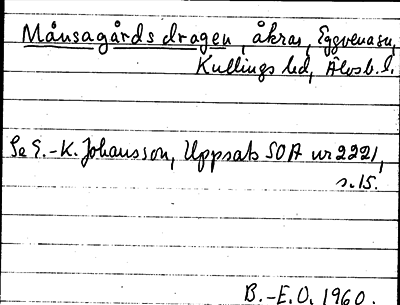 Månsagårdsdragen, åkrar, Eggvena sn,
Kullings hd, Älvsb. l.
Se E.-K. Johansson, Uppsats SOA nr 2221,
s. 15.
B.-E. O. 1960.